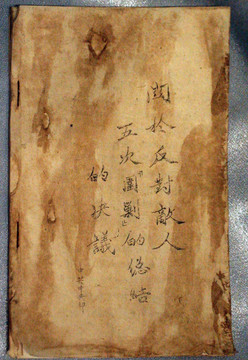 關於反對敵人
五次“圍剿”的總結
的決議